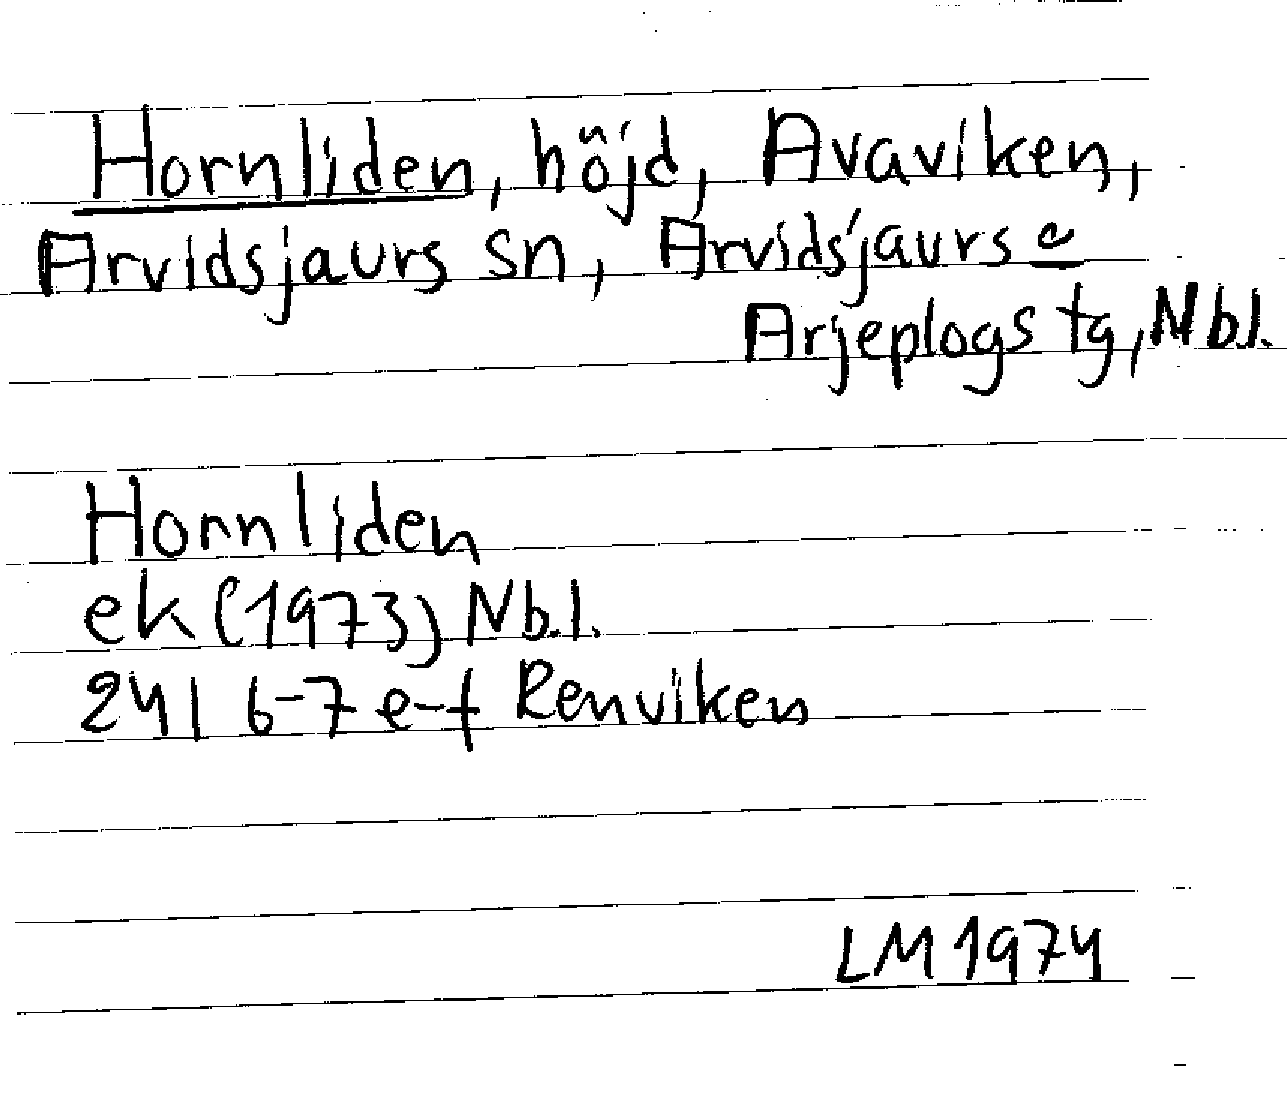 Hornliden, höjd, Avaviken,
Arvidsjaurs sn, Arvidsjaurs o
Arjeplogs tg, Nb.l.
Hornliden
ek (1973) Nb.l.
24 I 6-7 e-f Renviken
LM 1974